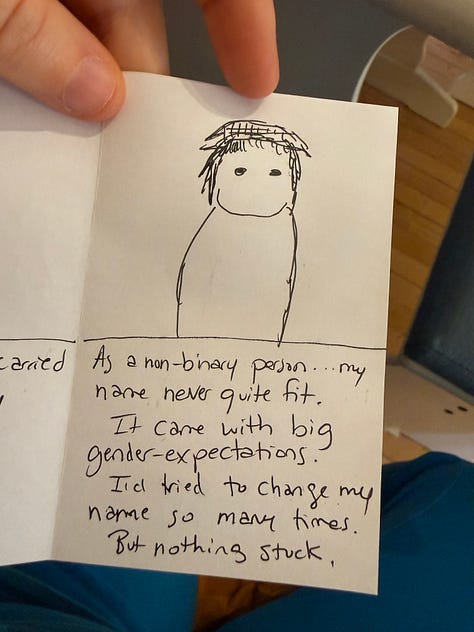 carried
As a non-binary person...my
name never quite fit.
It came with big
gender-expectations.
I'd tried to change my
name so many times.
But nothing stuck.